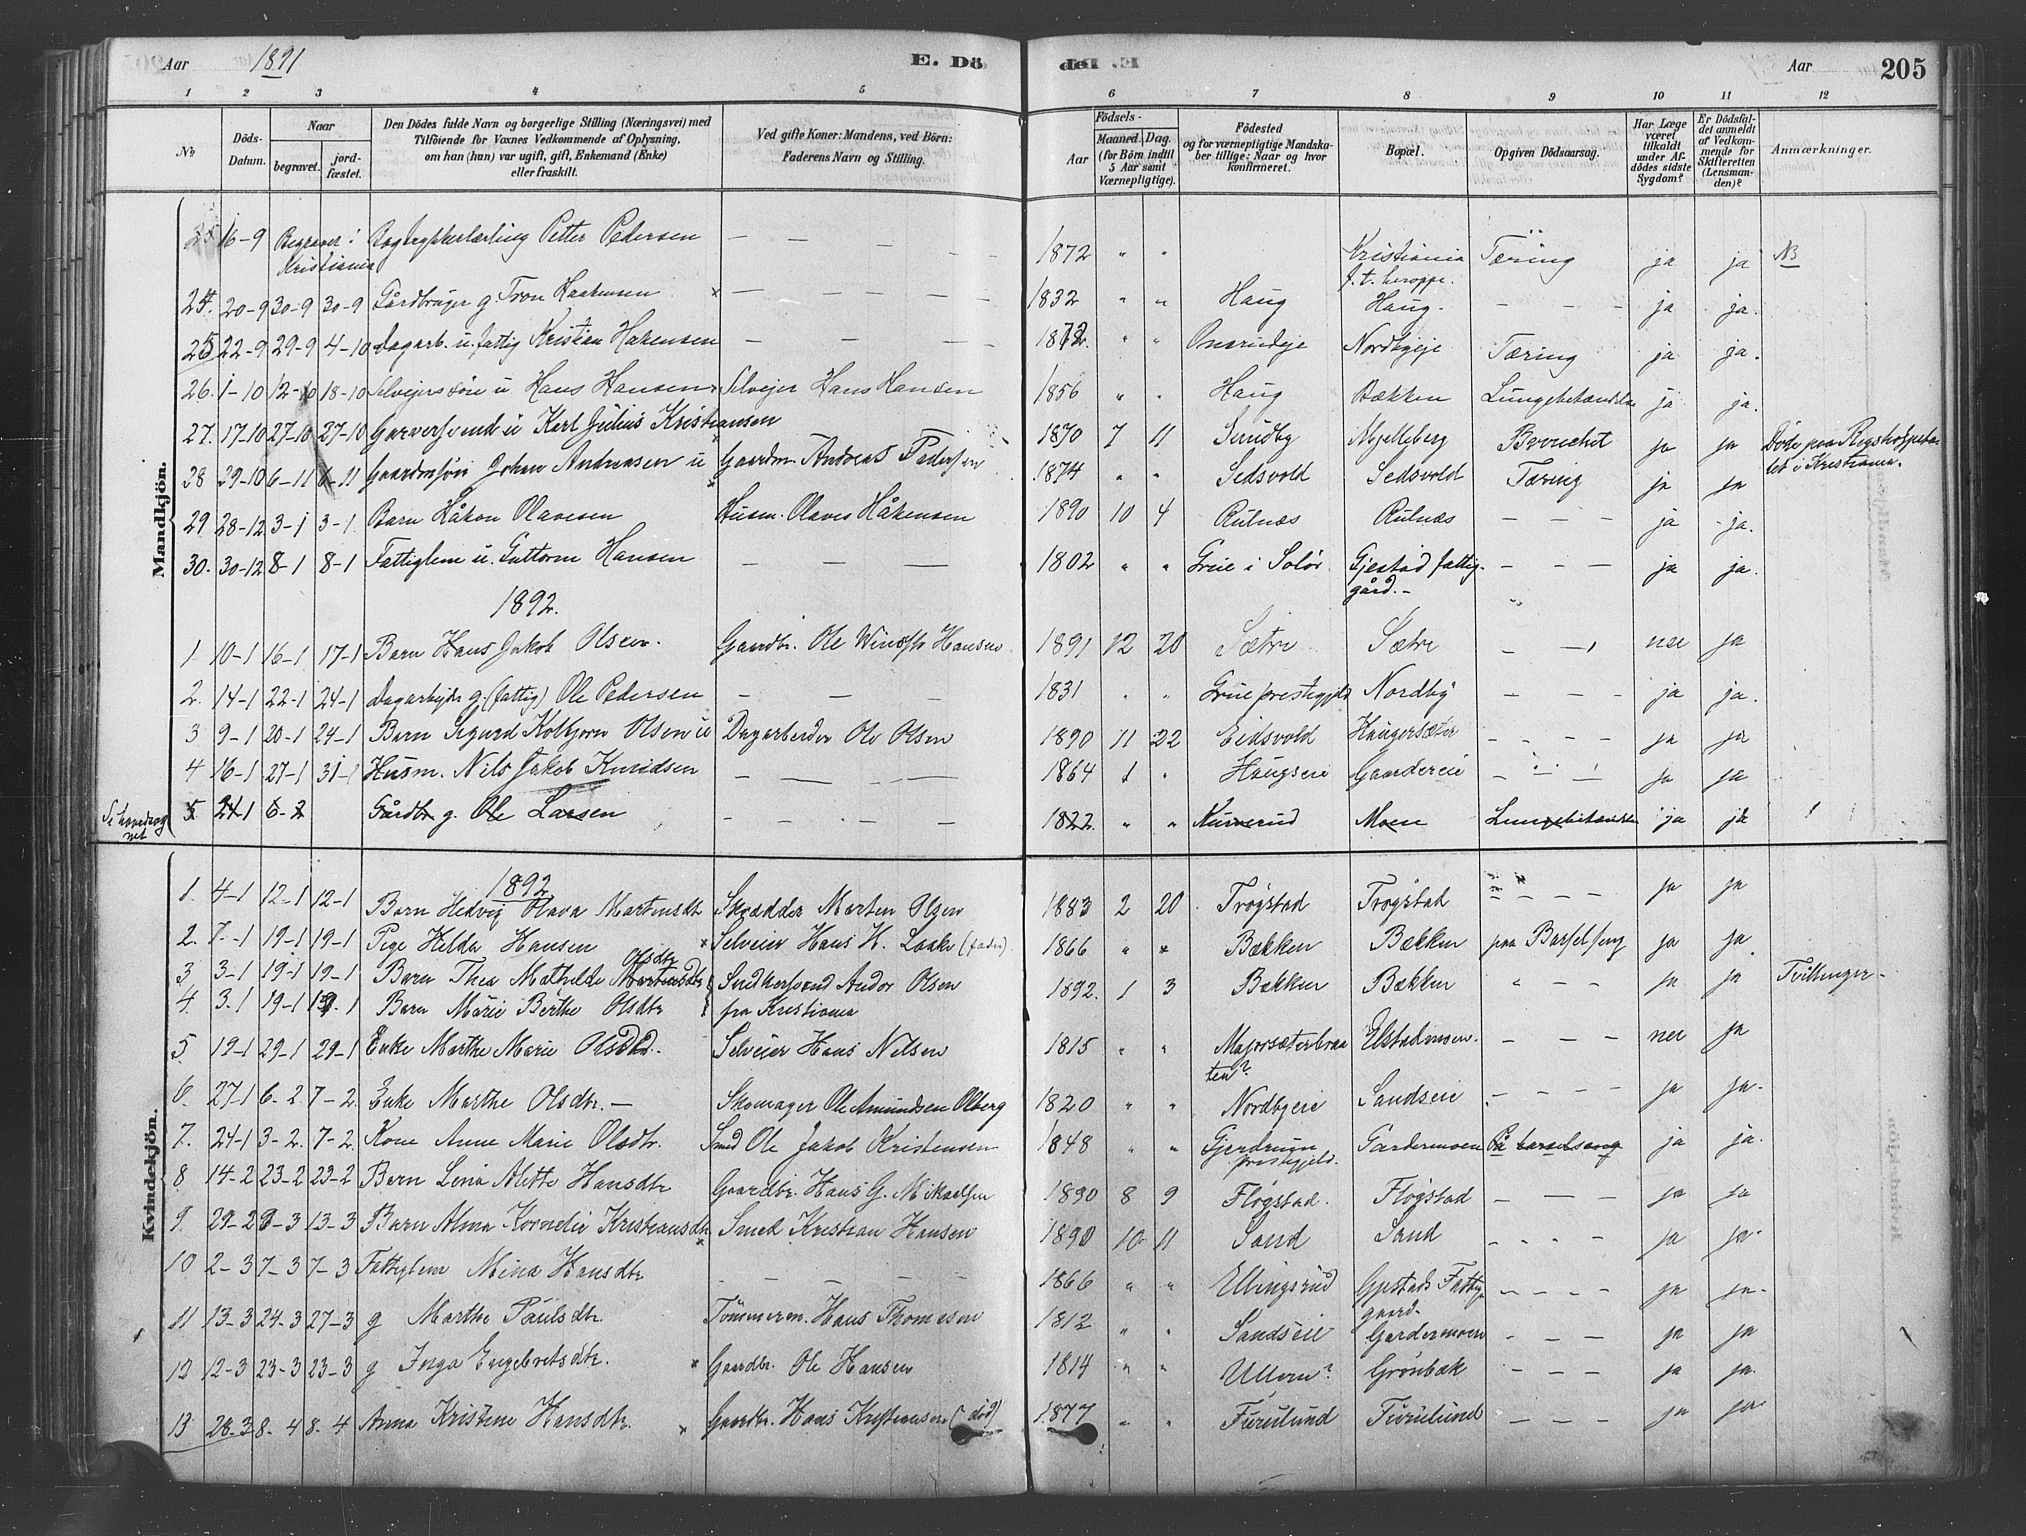 Aar 1891 E. Dö del E. Aar 205
1 2 3 4 5 6 7 8 9 10 11 12
No
Döds-Datum.
Naar
begravet.
jord-fæstet.
Den Dödes fulde Navn og borgerlige Stilling (Næringsvei) med
Tilföiende for Voxnes Vedkommende af Oplysning,
om han (hun) var ugift, gift, Enkemand (Enke)
eller fraskilt.
Ved gifte Koner: Mandens, ved Börn:
Faderens Navn og Stilling.
Födsels-
Aar
Maaned. Dag.
(for Börn indtil
5 Aar samt
Værnepligtige).
Födested
og for værnepligtige Mandska-
ber tillige: Naar og hvor
konfirmeret.
Bopæl.
Opgiven Dödsaarsag.
Har Læge
været
tilkaldt
under Af-
dödes sidste
Sygdom?
Er Dödsfal-
det anmeldt
af Vedkom-
mende for
Skifteretten
(Lensman-
den)?
Anmærkninger.
Mandkjön.
16-9 Begravet i Kristiania Petter Pedersen — — — — 1872 " " Kristiania f.t. heroppe. Tæring ja ja NB
24. 20-9 30-9 30-9 Gårdbruger g. Tron Haakensen x — — — — 1832 " " Haug Haug. — — — ja ja.
25 22-9 29-9 4-10 Dagarb. u. fattig Kristian Hakensen — — — 1872. " " Onsrudeje Nordbyeje Tæring ja ja.
26. 1-10 12-10 18-10 Selvejersøn u Hans Hansen Selvejer Hans Hansen 1856 " " Haug Bækken Lungebetændelse ja ja.
27. 17-10 27-10 27-10 Garversvend u Karl Julius Kristiansen 1870 7 11 Mjelleberg ja ja Døde paa Rigshospita-
let i Kristiania.
28 29-10 6-11 6-11 Gaardmsøn Johan Andreasen u x Gaardm. Andreas Pedersen 1874 " " Sedsvold Sedsvold Tæring ja ja
29 28-12 3-1 3-1. Barn Håkon Olavesen Husm. Olaves Håkensen 1890 10 4 Rulnæs Rulnæs — — — ja ja.
30. 30-12 8-1 8-1 Fattiglem u. Guttorm Hansen — — — 1802 " " Grue i Solør Gjestad fattig-
gård. — — — — ja ja.
1892.
1 10-1 16-1 17-1 Barn Hans Jakob Olsen. Gaardbr. Ole Hansen 1891 12 20 Sætre Sætre — — nei ja
2. 14-1 22-1 24-1 Dagarbejder g. (fattig) Ole Pedersen — — — 1831 " " Grue prestegjeld Nordby — — — ja ja.
3 9-1 20-1 24-1 Barn Sigurd Kolbjørn Olsen u Dagarbeider Ole Olsen 1890 11 22 Eidsvold Haugersæter — — — — ja ja
4 16-1 27-1 31-1 Husm. Nils Jakob Knudsen — — — 1864 1 " Haugseie Gaardereie — " — ja ja
5 24-1 6-2 Gårdbr g. Ole Larsen — — . — — 1822. " " Moen Lungebetændelse ja ja
Kvindekjön.
1892
1. 4-1 12-1 12-1 Barn Hedvig Olava Martinsdtr Skrædder Morten Olsen 1883 2 20. Trøgstad Trøgstad — — — ja ja
2. 7-1 19-1 19-1 Pige Helda Hansen x Selveier Hans H. Laake (fader). 1866 " " Bækken Bækken paa Barselseng ja ja.
3 3-1 19-1 19-1 Barn Thea Mathilde Martinsdtr Olsdtr Snedkersvend Andor Olsen 1892. 1 3 Bækken Bækken " — — ja ja Tvillinger-
4. 3-1 19-1 19-1 Barn Marie Berthe Olsdtr fra Kristiania
5 19-1 29-1 29-1 Enke Marthe Marie Olsdtr. Selveier Hans Nilsen 1815 " " Majorsæterbraa-
ten? Elstadmoen. — — — nei ja
6. 27-1 6-2. 7-2. Enke Marthe Olsdtr. — Skomager Ole Amundsen Olberg 1820 " " Nordbyeie Sandseie — — — ja ja.
7. 24-1 3-2. 7-2. Kone Anne Marie Olsdtr. Smed Ole Jakob Kristensen 1848 " " Gjerdrum
prestegjeld. Gardermoen På barselseng ja ja.
8 14-2 23-2 23-2 Barn Lina Alette Hansdtr Gaardbr. Hans G. Mikaelsen 1890 8 9 Fløgstad. Fløgstad — — — ja ja
9. 29-2 3 13-3 Barn Alma Kornelie Kristiansdtr x Smed Kristian Hansen 1890 10 11 Sand Sand — — — — ja ja.
10 2-3 7-3 7-3 Fattiglem Mina Hansdtr — — — — 1866 " " Ellingsrud Gjestads Fattig-
gaard. — — — — ja ja.
11 13-3 24-3 27-3 g Marthe Paulsdtr. Tømmerm. Hans Thomesen 1812 " " Sandseie Gardermoen — — — — ja ja
12 12-3 23-3 23-3 g Inga Engebretsdtr. x Gaardbr. Ole Hansen 1814 " " Ullern? Grønbæk — — — ja ja.
13 28-3 8-4 8-4 Anna Kristine Hansdtr. x Gaardbr. Hans Kristiansen (død) 1877 " " Furulund Furulund — — — — ja ja